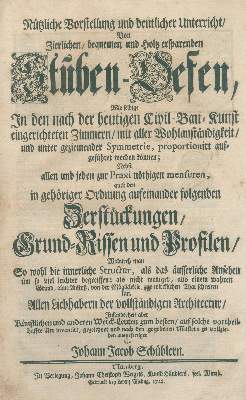 Nützliche Vorstellung und deutlicher Unterricht/
Von
Zierlichen, bequemen, und Holtz ersparenden
Stuben-Oefen,
Wie selbige
In den nach der heutigen Civil-Bau-Kunst
eingerichteten Zimmern, mit aller Wohlanständigkeit/
und unter geziemender Symmetrie, proportionirt aus-
geführet werden können;
Nebst
allen und jeden zur Praxi nöthigen mensuren,
auch den
in gehöriger Ordnung aufeinander folgenden
Zerstückungen/
Grund-Rissen und Profilen/
Woraus man
So wohl die innerliche Structur, als das äusserliche Ansehen
um so viel leichter
Allen Liebhabern der vollständigen Architectur/
Künstlichen und andern Werck-Leuten zum besten/
gezeichnet und nach den
Johann Jacob Schüblern.
Nürnberg,
In Verlegung, Johann Christoph Weigels, Kunst-Händlers, seel. Wittib.
Gedruckt bey